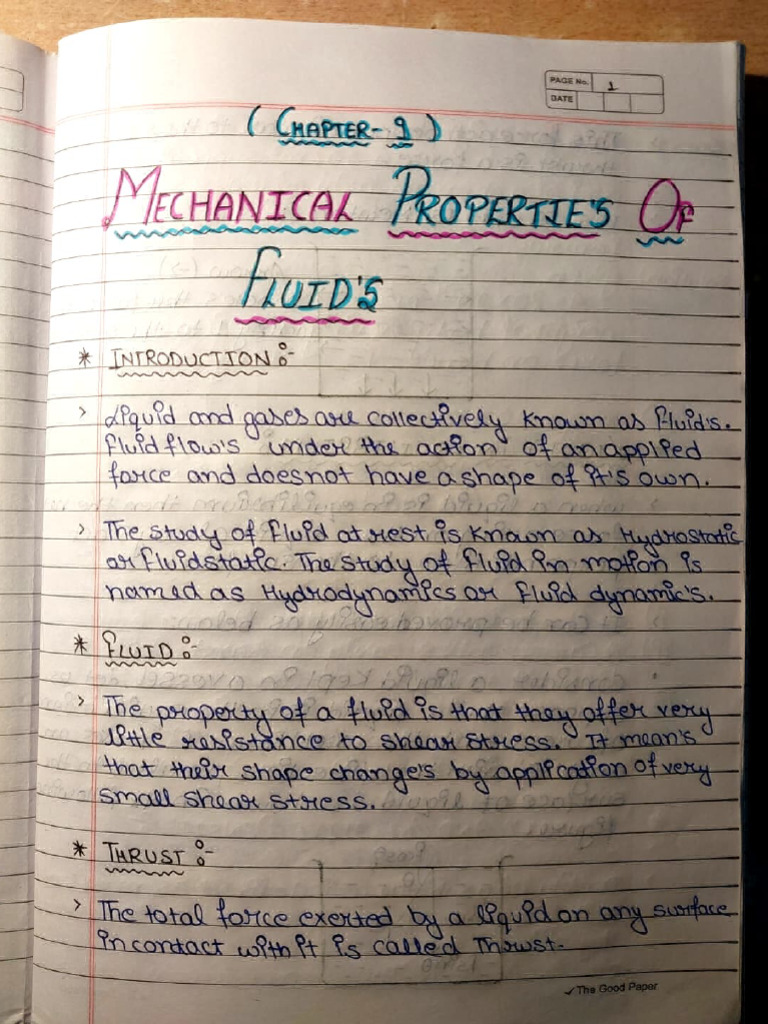 PAGE No. 1
DATE
( CHAPTER-9 )
MECHANICAL PROPERTIE'S OF
FLUID'S
* INTRODUCTION :-
> Liquid and gases are collectively known as fluid's.
fluid flow's under the action of an applied
force and doesnot have a shape of it's own.
> The study of fluid at rest is known as Hydrostatic
or fluidstatic. The study of fluid in motion is
named as Hydrodynamics or fluid dynamic's.
* FLUID :-
> The property of a fluid is that they offer very
little resistance to shear stress. It mean's
that their shape change's by application of very
small shear stress.
* THRUST :-
> The total force exerted by a liquid on any surface
in contact with it is called Thrust.
✓ The Good Paper